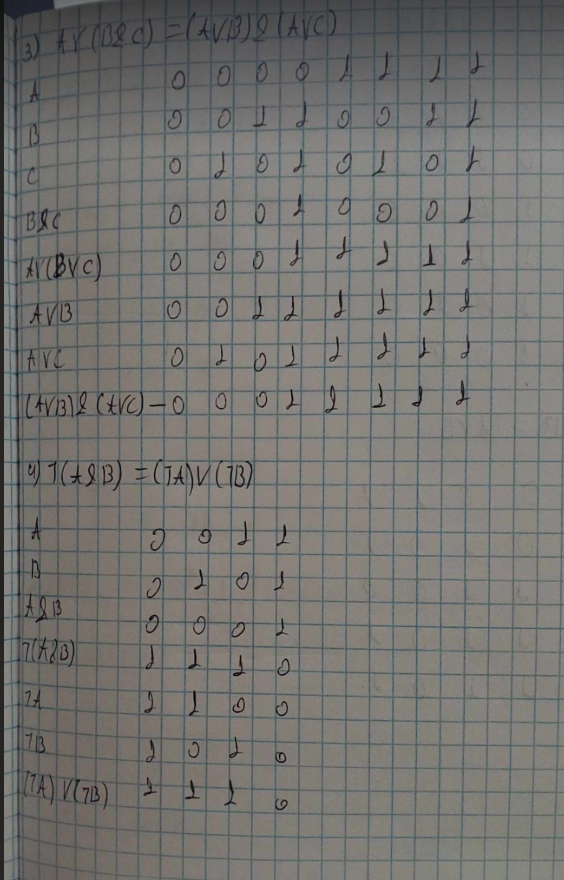 3) AV(B&C) = (AVB)&(AVC)
A 0 0 0 0 1 1 1 1
B 0 0 1 1 0 0 1 1
C 0 1 0 1 0 1 0 1
B&C 0 0 0 1 0 0 0 1
AV(BVC) 0 0 0 1 1 1 1 1
AVB 0 0 1 1 1 1 1 1
AVC 0 1 0 1 1 1 1 1
(AVB)&(AVC) - 0 0 0 1 1 1 1 1
4) ㄱ(A&B) = (ㄱA)V(ㄱB)
A 0 0 1 1
B 0 1 0 1
A&B 0 0 0 1
ㄱ(A&B) 1 1 1 0
ㄱA 1 1 0 0
ㄱB 1 0 1 0
(ㄱA)V(ㄱB) 1 1 1 0